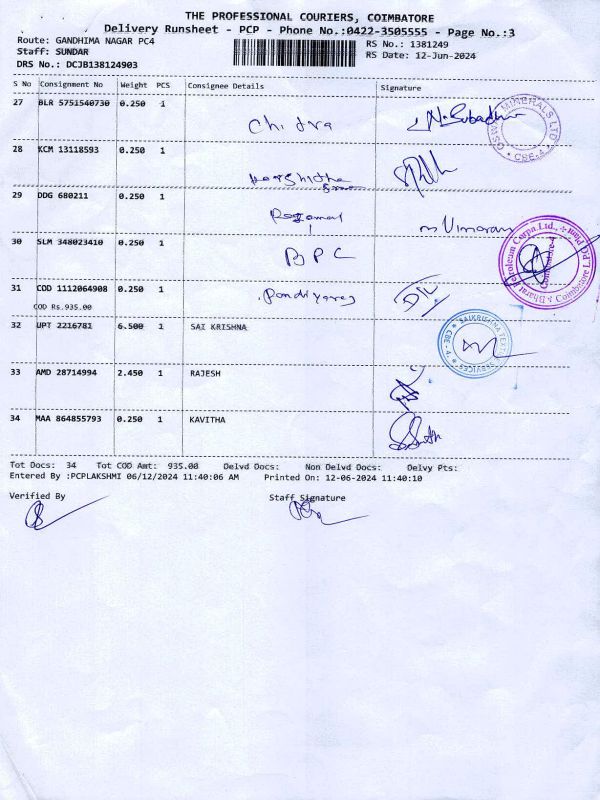 THE PROFESSIONAL COURIERS, COIMBATORE
Delivery Runsheet - PCP - Phone No.:0422-3505555 - Page No.:3
Route: GANDHIMA NAGAR PC4 RS No.: 1381249
Staff: SUNDAR RS Date: 12-Jun-2024
DRS No.: DCJB138124903
S No Consignment No Weight PCS Consignee Details Signature
27 BLR 5751540730 0.250 1 Chidra
28 KCM 13118593 0.250 1
29 DDG 680211 0.250 1
30 SLM 348023410 0.250 1 BPC
31 COD 1112064908 0.250 1 Pondiyaraj
COD Rs.935.00
32 UPT 2216781 6.500 1 SAI KRISHNA
33 AMD 28714994 2.450 1 RAJESH
34 MAA 864855793 0.250 1 KAVITHA
Tot Docs: 34 Tot COD Amt: 935.00 Delvd Docs: Non Delvd Docs: Delvy Pts:
Entered By :PCPLAKSHMI 06/12/2024 11:40:06 AM Printed On: 12-06-2024 11:40:10
Verified By Staff Signature